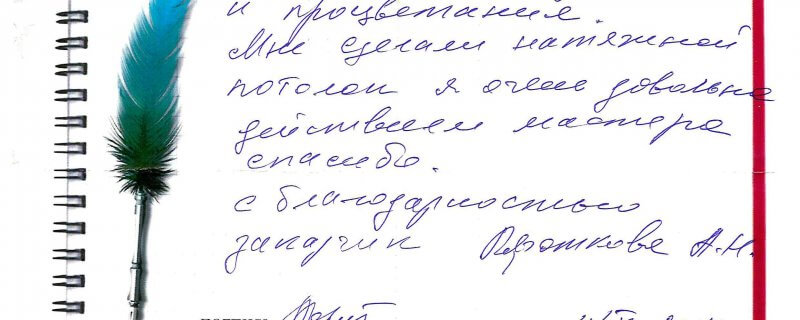 и процветания.
Мне сделали натяжной
потолок я очень довольна
действием мастера
спасибо.
с благодарностью
заказчик А.Н.